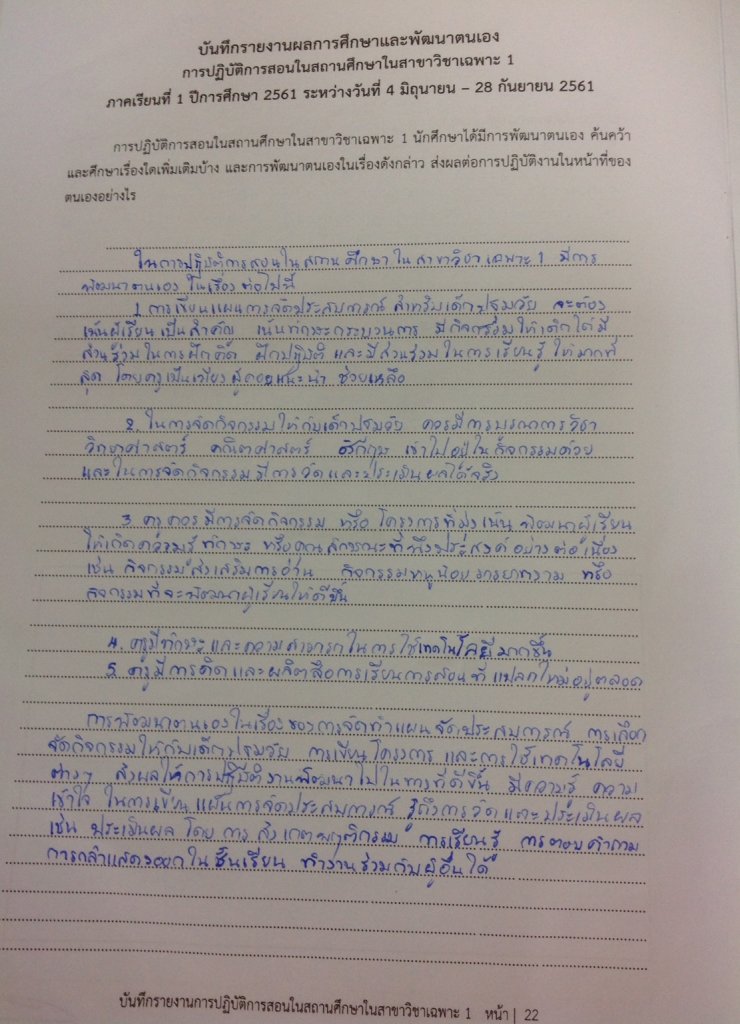 บันทึกรายงานผลการศึกษาและพัฒนาตนเอง
การปฏิบัติการสอนในสถานศึกษาในสาขาวิชาเฉพาะ 1
ภาคเรียนที่ 1 ปีการศึกษา 2561 ระหว่างวันที่ 4 มิถุนายน – 28 กันยายน 2561
การปฏิบัติการสอนในสถานศึกษาในสาขาวิชาเฉพาะ 1 นักศึกษาได้มีการพัฒนาตนเอง ค้นคว้า
และศึกษาเรื่องใดเพิ่มเติมบ้าง และการพัฒนาตนเองในเรื่องดังกล่าว ส่งผลต่อการปฏิบัติงานในหน้าที่ของ
ตนเองอย่างไร
ในการปฏิบัติการสอนในสถานศึกษาในสาขาวิชาเฉพาะ 1 มีการ
พัฒนาตนเองในเรื่องต่อไปนี้
1. การเขียนแผนการจัดประสบการณ์ สำหรับเด็กปฐมวัย จะต้อง
เน้นผู้เรียนเป็นสำคัญ เน้นทักษะกระบวนการ มีกิจกรรมให้เด็กได้มี
ส่วนร่วมในการฝึกคิด ฝึกปฏิบัติ และมีส่วนร่วมในการเรียนรู้ให้มากที่
สุด โดยครูเป็นเพียงผู้คอยแนะนำ ช่วยเหลือ
2. ในการจัดกิจกรรมให้กับเด็กปฐมวัย ควรมีการบูรณาการวิชา
วิทยาศาสตร์ คณิตศาสตร์ เข้าไปอยู่ในกิจกรรมด้วย
และในการจัดกิจกรรมมีการวัดและประเมินผลได้จริง
3. ครูควรมีการจัดกิจกรรม หรือโครงการที่มุ่งเน้นพัฒนาผู้เรียน
ให้เกิดความรู้ ทักษะ หรือคุณลักษณะที่พึงประสงค์อย่างต่อเนื่อง
เช่น กิจกรรมส่งเสริมการอ่าน กิจกรรมหนูน้อยมารยาทงาม หรือ
กิจกรรมที่จะพัฒนาผู้เรียนให้ดีขึ้น
4. ครูมีทักษะและความสามารถในการใช้เทคโนโลยีมากขึ้น
5. ครูมีการคิดและผลิตสื่อการเรียนการสอนที่แปลกใหม่อยู่ตลอด
การพัฒนาตนเองในเรื่องของการจัดทำแผนจัดประสบการณ์ การเลือก
จัดกิจกรรมให้กับเด็กปฐมวัย การเขียนโครงการ และการใช้เทคโนโลยี
ต่างๆ ส่งผลให้การปฏิบัติงานพัฒนาไปในทางที่ดีขึ้น มีความรู้ ความ
เข้าใจ ในการเขียนแผนการจัดประสบการณ์ รู้ถึงการวัดและประเมินผล
เช่น ประเมินผลโดยการสังเกตพฤติกรรม การเรียนรู้ การตอบคำถาม
การกล้าแสดงออกในชั้นเรียน ทำงานร่วมกับผู้อื่นได้
บันทึกรายงานการปฏิบัติการสอนในสถานศึกษาในสาขาวิชาเฉพาะ 1 หน้า | 22